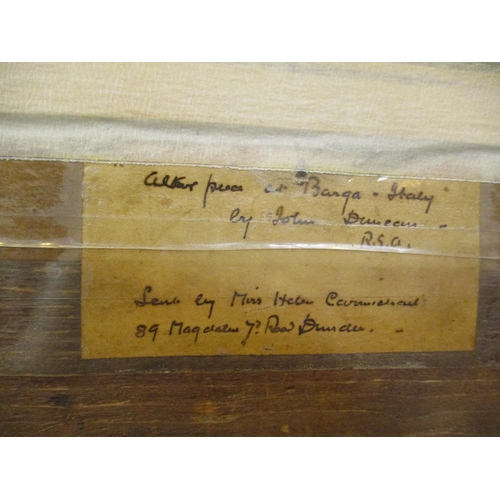 "Altar piece at Barga - Italy"
by John Duncan -
R.S.A.
Lent by Miss Helen Carmichael
39 Magdalen Yd. Road Dundee. -